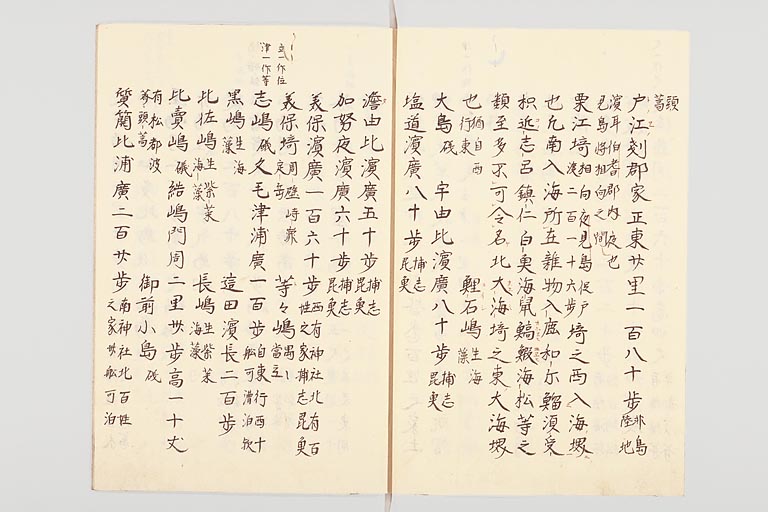 頭
蒿
戸江剗郡家正東廿里一百八十歩 非島陸地
濱耳伯耆郡内夜也
見島将相向之間
栗江埼 相向夜見島促戸渡二百一十六歩 埼之西入海堺
也凢南入海所在雑物入鹿和尓鯔湏受
枳近志呂鎮仁白魚海鼠鰝鰕海松等之
類至多不可令名北大海埼之東大海堺
也 猶自西行東 鯉石嶋 生海藻
大島 磯 宇由比濱廣八十歩 捕志毘魚
塩道濱廣八十歩 捕志毘魚
澹由比濱廣五十歩 捕志毘魚
加努夜濱廣六十歩 捕志毘魚
義保濱廣一百六十歩 西有神社北有百姓之家捕志毘魚
立一作位
津一作等
義保埼 周壁峙嶽定岳 等々嶋 禺々當立
志嶋 磯 久毛津浦廣一百歩 自東行西十舩可泊
黒嶋 生海藻 這田濱長二百歩
比佐嶋 生紫菜海藻 長嶋 生紫菜海藻
比賣嶋 磯 結嶋門周二里卅歩高一十丈
有松都波
薺頭蒿 御前小島 磯
質簡比浦廣二百廿歩 南神社北百姓之家卅舩可泊